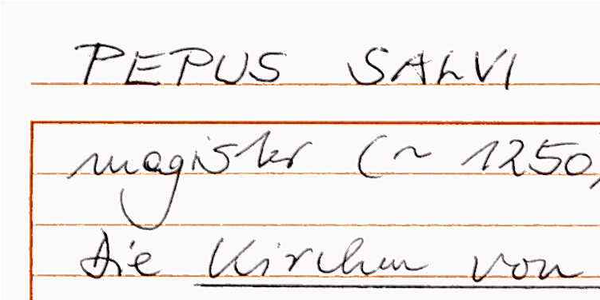 PEPUS SALVI
magister (~ 1250,
die Kirchen von